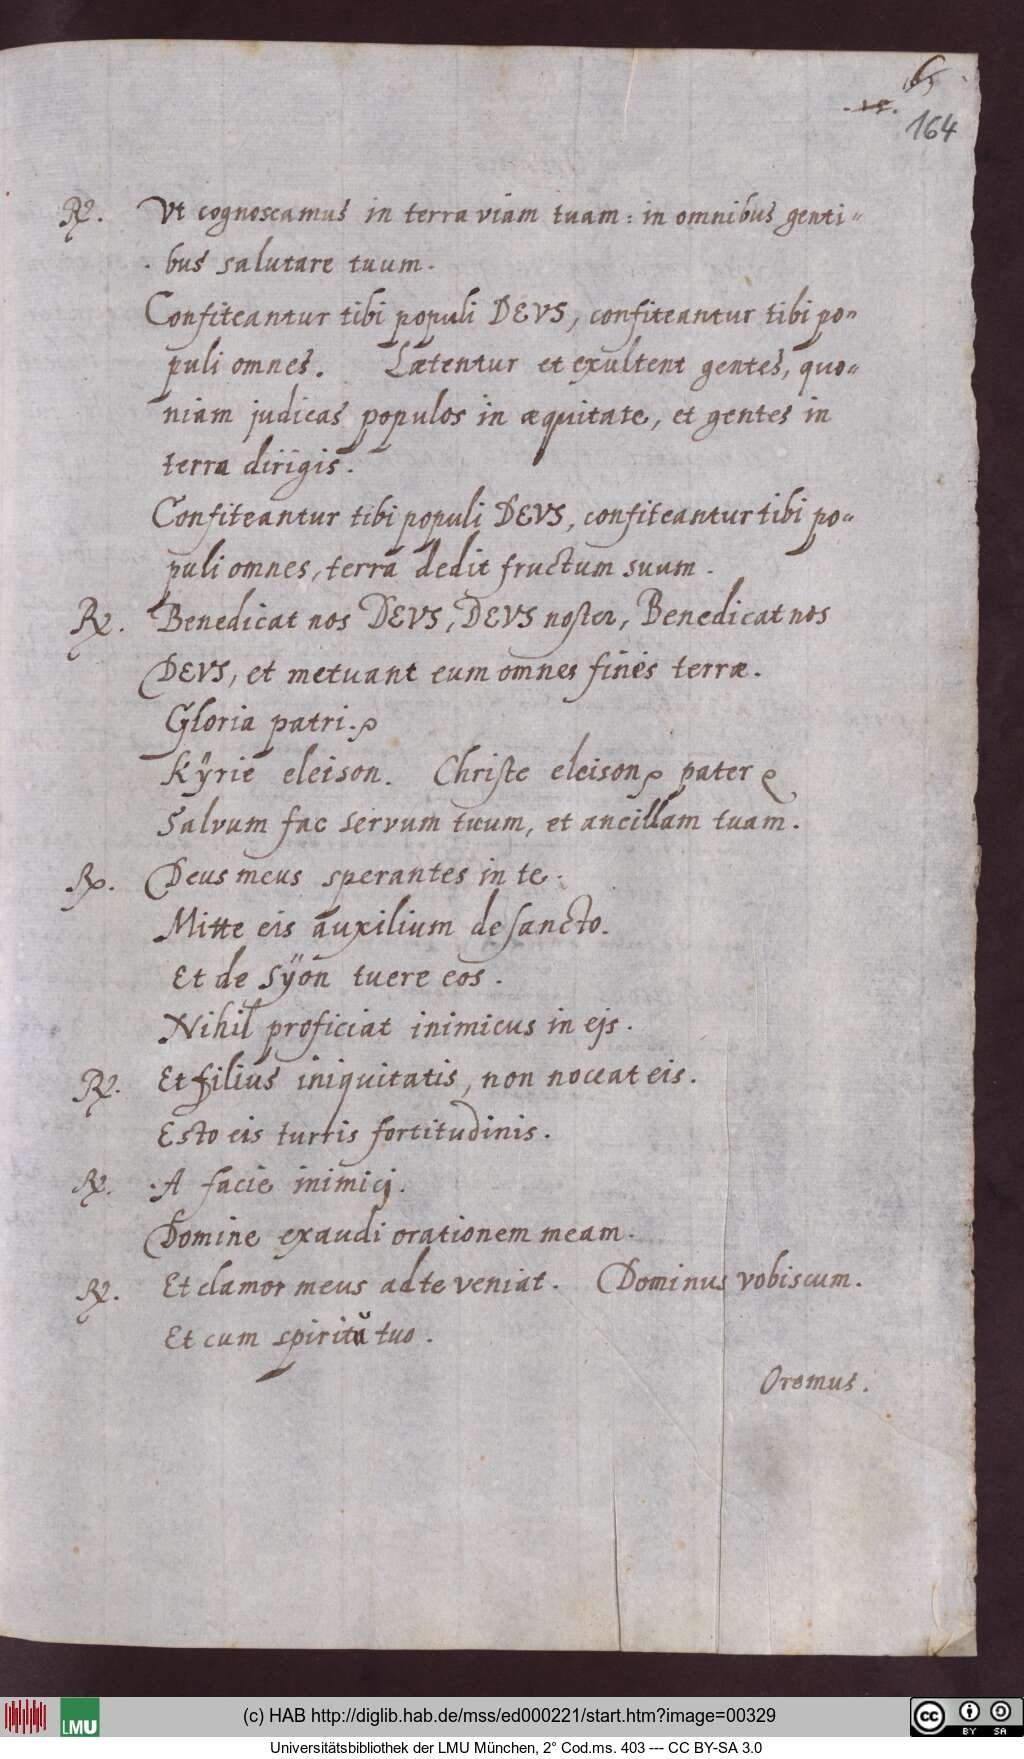 6
15.
164
℟. Vt cognoscamus in terra viam tuam: in omnibus genti=
bus salutare tuum.
Confiteantur tibi populi DEVS, confiteantur tibi po=
puli omnes. Lætentur et exultent gentes, quo=
niam judicas populos in æquitate, et gentes in
terra dirigis.
Confiteantur tibi populi DEVS, confiteantur tibi po=
puli omnes, terra dedit fructum suum.
℟. Benedicat nos DEVS, DEVS noster, Benedicat nos
DEVS, et metuant eum omnes fines terræ.
Gloria patri.
Kÿrie eleison. Christe eleison pater
Salvum fac servum tuum, et ancillam tuam.
℟. Deus meus sperantes in te.
Mitte eis auxilium de sancto.
Et de Sÿon tuere eos.
Nihil proficiat inimicus in ejs.
℟. Et filius iniquitatis, non noceat eis.
Esto eis turris fortitudinis.
℟. A facie inimicj.
Domine exaudi orationem meam.
℟. Et clamor meus ad te veniat. Dominus vobiscum.
Et cum spiritŭ tuo.
Oremus.
LMU
(c) HAB http://diglib.hab.de/mss/ed000221/start.htm?image=00329
cc BY SA
Universitätsbibliothek der LMU München, 2° Cod.ms. 403 --- CC BY-SA 3.0